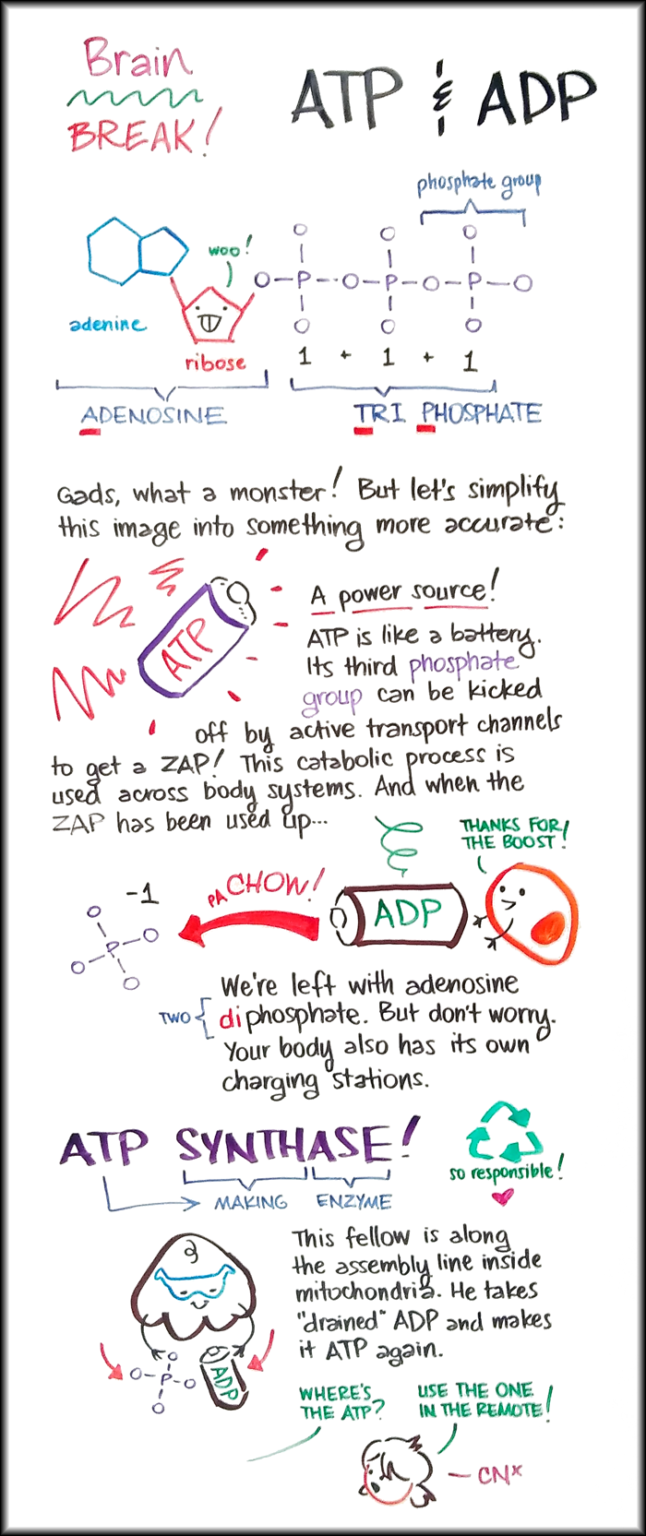 Brain
BREAK!
ATP & ADP
phosphate group
woo!
O-P-O-P-O-P-O
O O O
O O O
adenine
ribose
1 + 1 + 1
ADENOSINE
TRI PHOSPHATE
Gads, what a monster! But let's simplify
this image into something more accurate:
ATP
A power source!
ATP is like a battery.
Its third phosphate
group can be kicked
off by active transport channels
to get a ZAP! This catabolic process is
used across body systems. And when the
ZAP has been used up...
THANKS FOR
THE BOOST!
-1
PACHOW!
ADP
O
O-P-O
O
We're left with adenosine
TWO { diphosphate. But don't worry.
Your body also has its own
charging stations.
ATP SYNTHASE!
MAKING ENZYME
so responsible!
This fellow is along
the assembly line inside
mitochondria. He takes
"drained" ADP and makes
it ATP again.
O
O-P-O
O
ADP
WHERE'S
THE ATP?
USE THE ONE
IN THE REMOTE!
- CNX